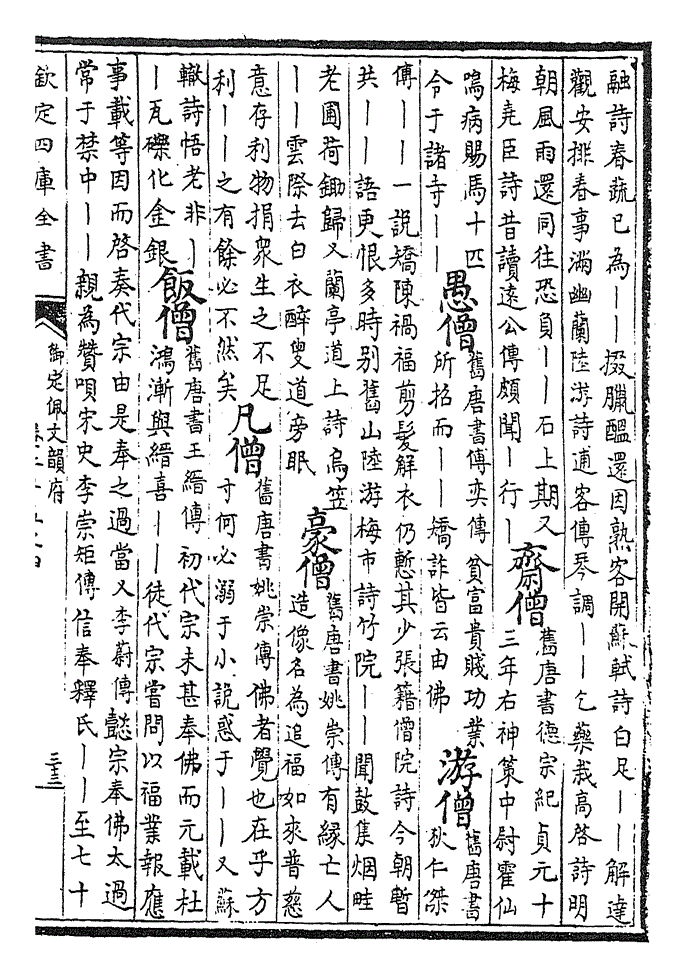 融詩春蔬已為——掇臘醞還因熟客開蘇軾詩白足——解達
觀安排春事滿幽蘭陸游詩逋客傳琴調——乞藥栽高啓詩明
朝風雨還同往恐負——石上期又
梅堯臣詩昔讀遠公傳頗聞—行—
齋僧
舊唐書德宗紀貞元十
三年右神策中尉霍仙
鳴病賜馬十匹
令于諸寺——
愚僧
舊唐書傅奕傳貧富貴賤功業
所招而——矯詐皆云由佛
游僧
舊唐書
狄仁傑
傳——一說矯陳禍福剪髮解衣仍慙其少張籍僧院詩今朝暫
共——語更恨多時別舊山陸游梅市詩竹院——聞鼓集烟畦
老圃荷鋤歸又蘭亭道上詩烏笠
——雲際去白衣醉叟道旁眠
豪僧
舊唐書姚崇傳有緣亡人
造像名為追福如來普慈
意存利物捐衆生之不足
利——之有餘必不然矣
凡僧
舊唐書姚崇傳佛者覺也在乎方
寸何必溺于小說惑于——又蘇
轍詩悟老非—
—瓦礫化金銀
飯僧
舊唐書王縉傳初代宗未甚奉佛而元載杜
鴻漸與縉喜——徒代宗嘗問以福業報應
事載等因而啓奏代宗由是奉之過當又李蔚傳懿宗奉佛太過
常于禁中——親為贊唄宋史李崇矩傳信奉釋氏——至七十
欽定四庫全書
御定佩文韻府
三十三